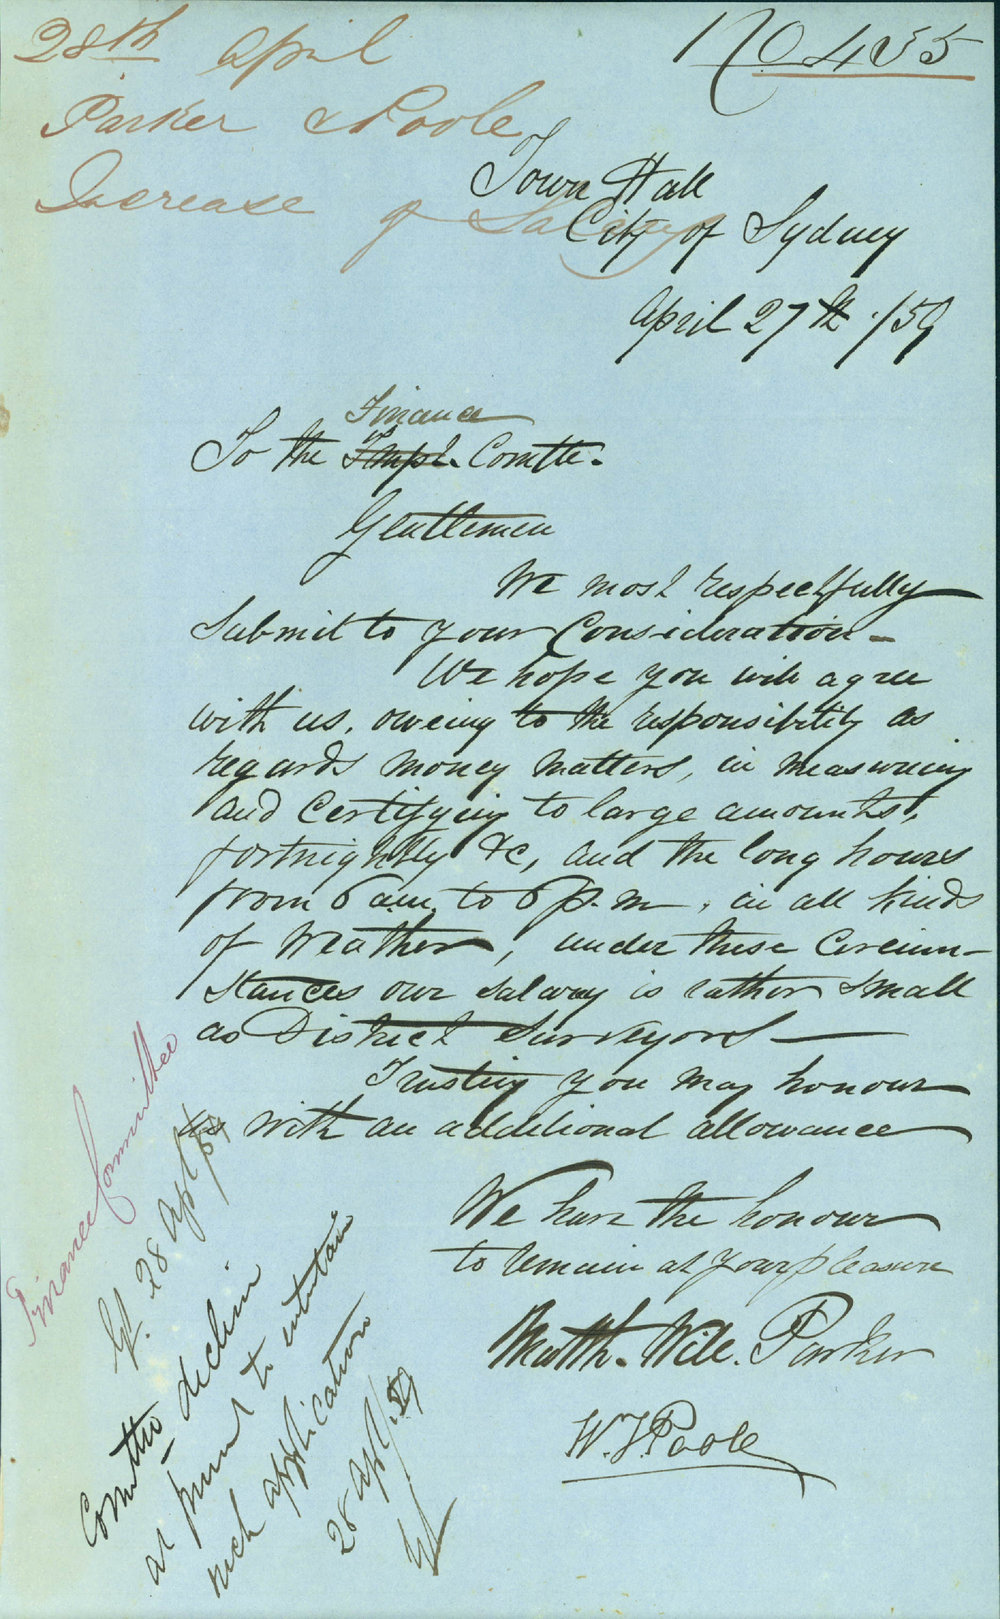 28th April
Parker & Poole
Increase of Salary
No 455
Town Hall
City of Sydney
April 27th /59
Finance
To the Impt. Comtte.
Gentlemen
We most respectfully
Submit to your Consideration –
We hope you will agree
with us, oweing to the responsibility as
regards money matters, in measuring
and Certifying to large amounts,
fortnightly &c, and the long hours
from 6 a.m. to 6 p.m., in all kinds
of Weather, under these Circum-
stances our salary is rather small
as District Surveyors —
Trusting you may honour
us with an additional allowance
We have the honour
to remain at your pleasure
Matth. Will. Parker
W. J. Poole
Finance Committee
28 Apl /59
Comttee decline
at present to entertain
such application
28 Apl /59